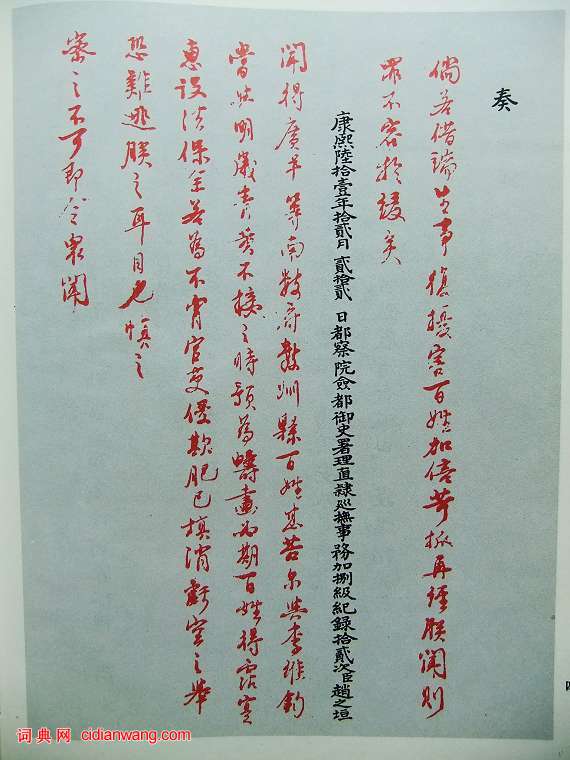 奏
倘若借端生事復擾害百姓加倍苛派再經朕聞則
罪不容於緩矣
康熙陸拾壹年拾貳月 貳拾貳 日都察院僉都御史署理直隸巡撫事務加捌級紀錄拾貳次臣趙之垣
聞得廣平等南數府數州縣百姓甚苦尔與李維鈞
當於明歲青黃不接之時預為籌畫期百姓得霑實
惠设法保全若為不肖官吏侵欺肥己填消虧空之舉
恐難逃朕之耳目也慎之
密之不可即令眾聞
词典网 cidianwang.com